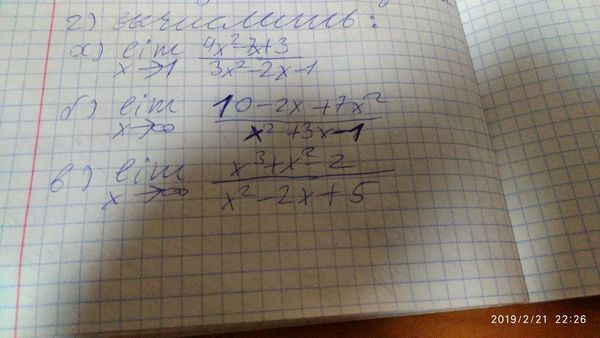 2) вычислить:
а) lim x→1 4x²-7x+3 / 3x²-2x-1
б) lim x→∞ 10-2x+7x² / x²+3x-1
в) lim x→∞ x³+x²-2 / x²-2x+5
2019/2/21 22:26